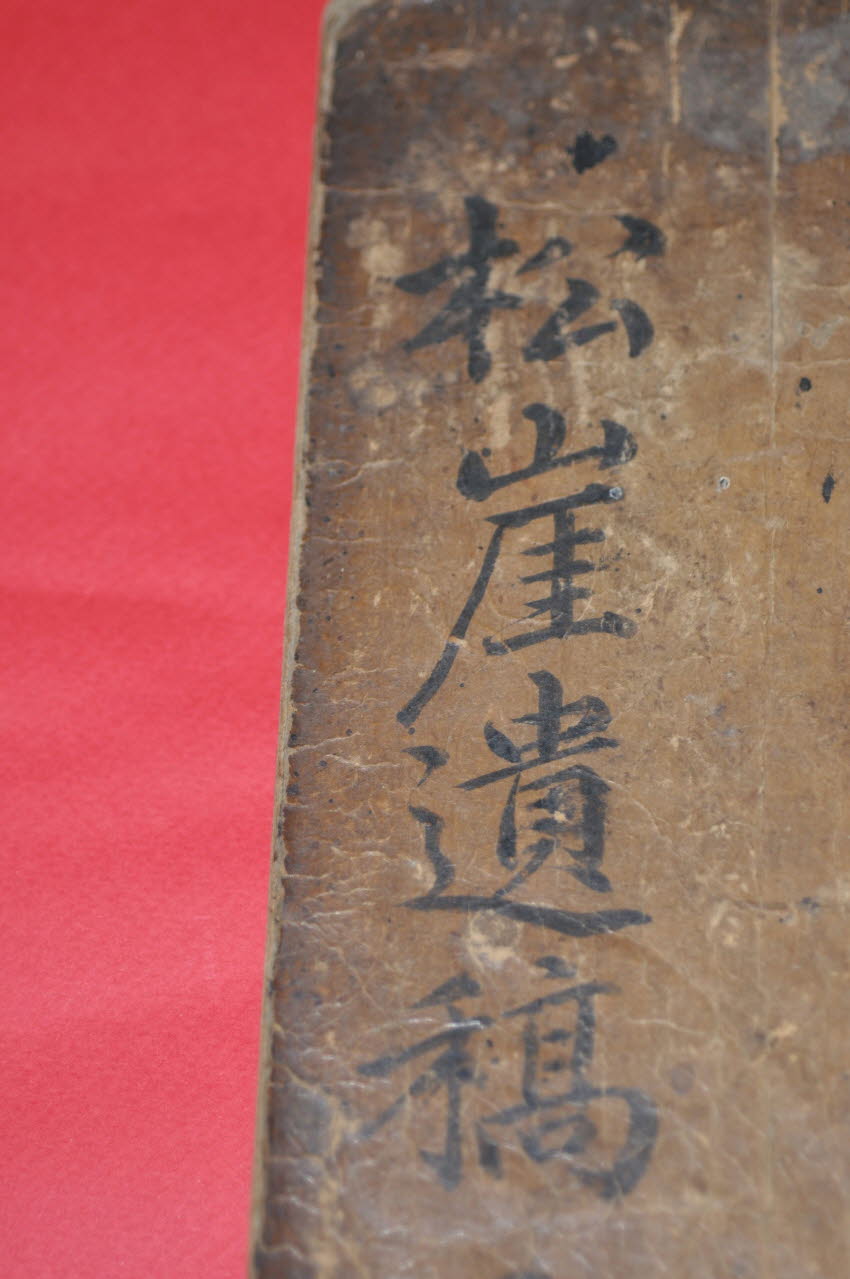 松崖遺稿